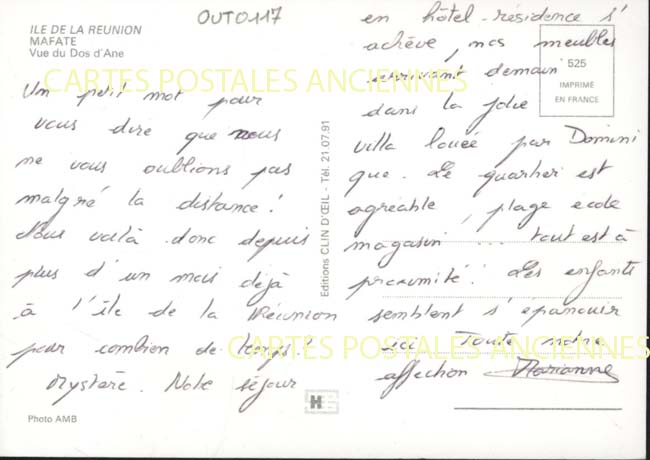 ILE DE LA REUNION
MAFATE
Vue du Dos d'Ane
OUTO117
CARTES POSTALES ANCIENNES
Un petit mot pour
vous dire que nous
ne vous oublions pas
malgré la distance !
Nous voilà donc depuis
plus d'un mois déjà
à l'île de la Réunion
pour combien de temps !
Mystère. Notre séjour
Photo AMB
Editions CLIN D'ŒIL - Tél. 21.07.91
525
IMPRIME
EN FRANCE
en hôtel-résidence s'
achève, nos meubles
arrivant demain
dans la jolie
villa louée par Domini
que. Le quartier est
agréable, plage école
magasin ... tout est à
proximité ! Les enfants
semblent s'épanouir
ici Toute notre
affection Marianne
CARTES POSTALES ANCIENNES